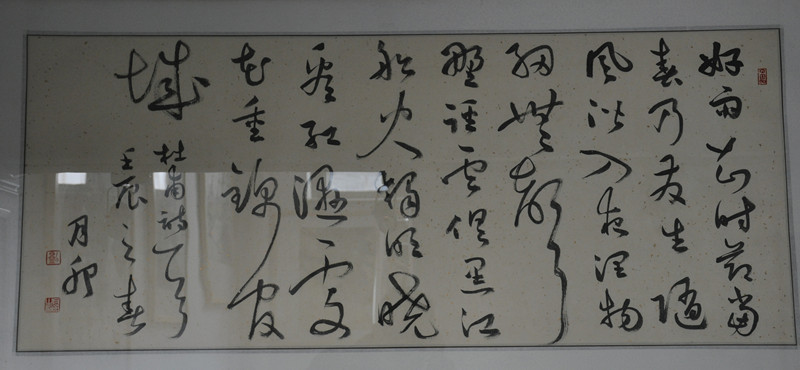 好雨知时节當
春乃发生随
风潜入夜润物
细無聲
野径雲俱黑江
船火獨明晓
看红濕處
花重锦官
城
杜甫诗一首
壬辰之春
月